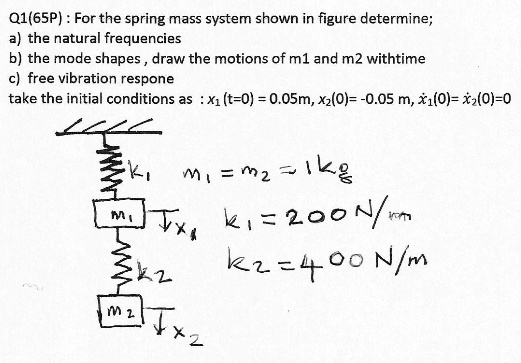 Q1(65P) : For the spring mass system shown in figure determine;
a) the natural frequencies
b) the mode shapes , draw the motions of m1 and m2 withtime
c) free vibration respone
take the initial conditions as : x₁ (t=0) = 0.05m, x₂(0)= -0.05 m, ẋ₁(0)= ẋ₂(0)=0
k₁ m₁ = m₂ = 1kg
m₁ x₁ k₁ = 200 N/m
k₂ k₂ = 400 N/m
m₂ x₂